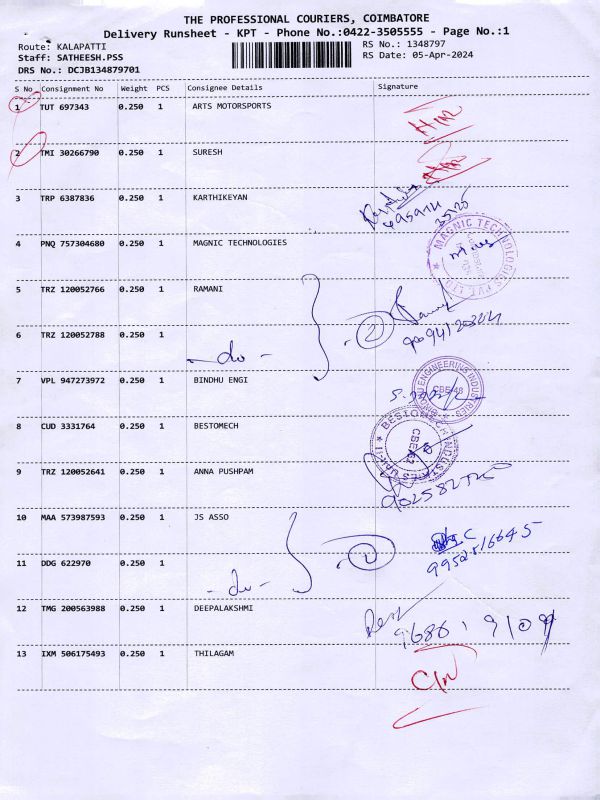 THE PROFESSIONAL COURIERS, COIMBATORE
Delivery Runsheet - KPT - Phone No.:0422-3505555 - Page No.:1
Route: KALAPATTI
RS No.: 1348797
Staff: SATHEESH.PSS
RS Date: 05-Apr-2024
DRS No.: DCJB134879701
S No Consignment No Weight PCS Consignee Details Signature
1 TUT 697343 0.250 1 ARTS MOTORSPORTS
2 TMI 30266790 0.250 1 SURESH
3 TRP 6387836 0.250 1 KARTHIKEYAN
4 PNQ 757304680 0.250 1 MAGNIC TECHNOLOGIES
MAGNIC TECHNOLOGIES PVT. LTD
5 TRZ 120052766 0.250 1 RAMANI
6 TRZ 120052788 0.250 1
- do -
2
7 VPL 947273972 0.250 1 BINDHU ENGI
ENGINEERING INDUSTRIES
CBE-48
8 CUD 3331764 0.250 1 BESTOMECH
BESTOMECH INDUSTRIES UNIT-II
CBE-62
9 TRZ 120052641 0.250 1 ANNA PUSHPAM
10 MAA 573987593 0.250 1 JS ASSO
11 DDG 622970 0.250 1
- do -
12 TMG 200563988 0.250 1 DEEPALAKSHMI
13 IXM 506175493 0.250 1 THILAGAM